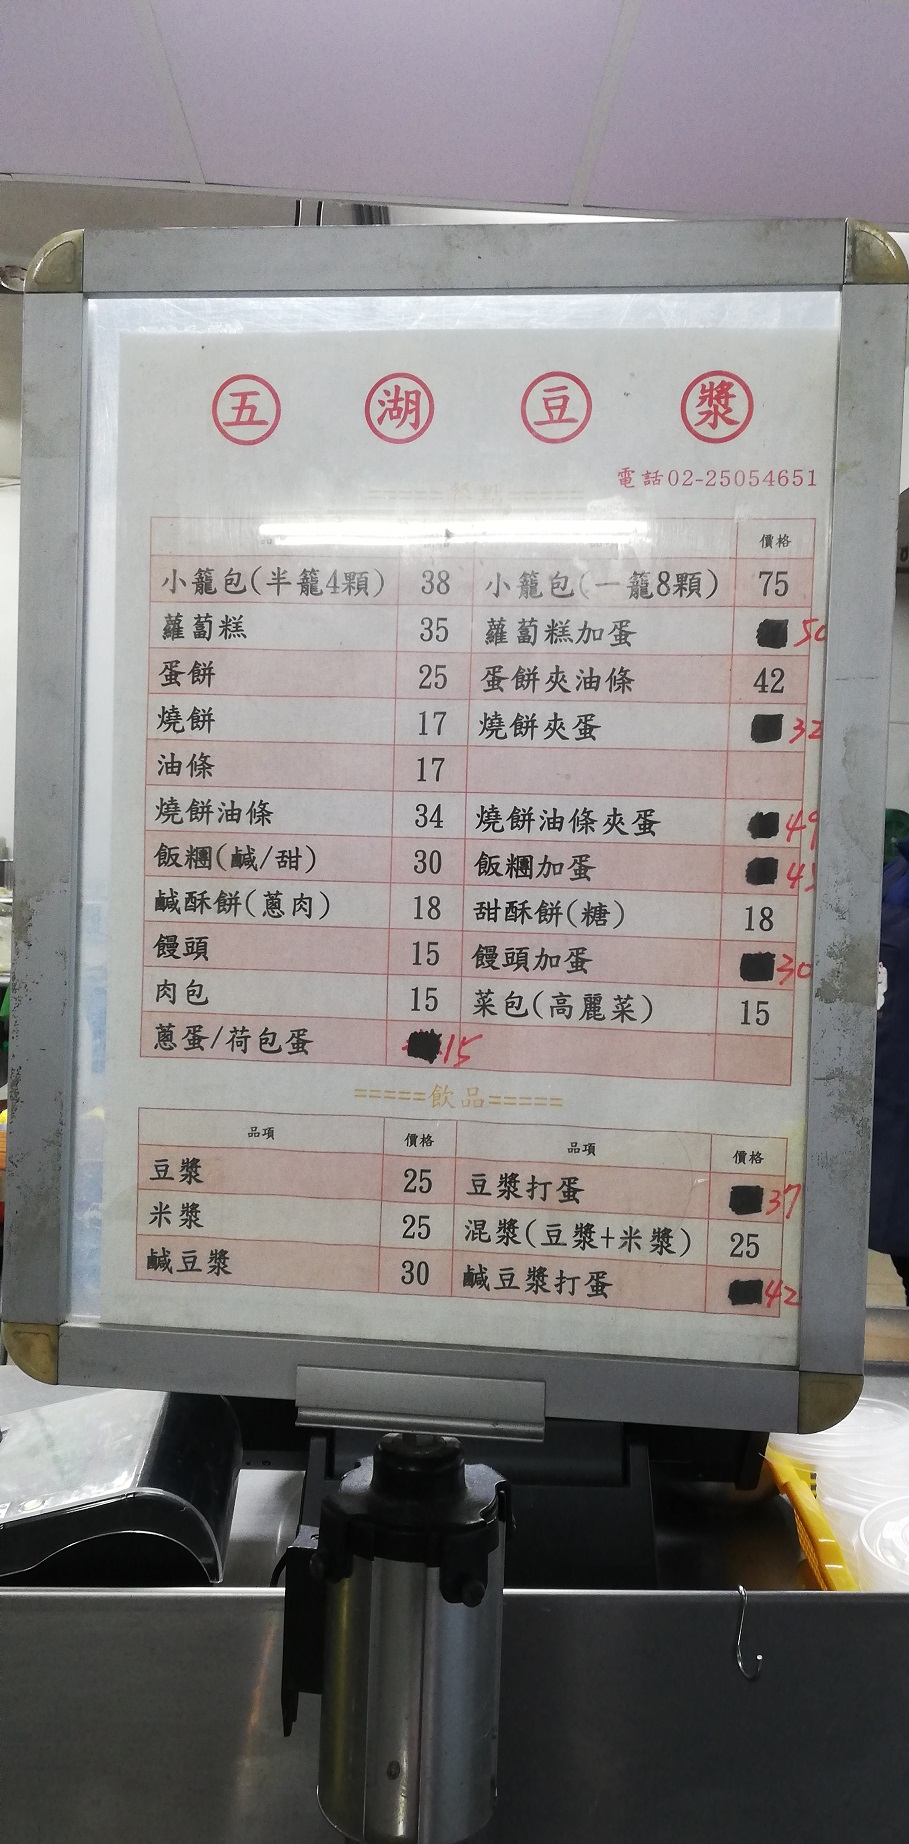 五 湖 豆 漿
電話02-25054651
=====餐點=====
價格
小籠包(半籠4顆) 38 小籠包(一籠8顆) 75
蘿蔔糕 35 蘿蔔糕加蛋 50
蛋餅 25 蛋餅夾油條 42
燒餅 17 燒餅夾蛋 32
油條 17
燒餅油條 34 燒餅油條夾蛋 49
飯糰(鹹/甜) 30 飯糰加蛋
鹹酥餅(蔥肉) 18 甜酥餅(糖) 18
饅頭 15 饅頭加蛋 30
肉包 15 菜包(高麗菜) 15
蔥蛋/荷包蛋 15
=====飲品=====
品項 價格 品項 價格
豆漿 25 豆漿打蛋 37
米漿 25 混漿(豆漿+米漿) 25
鹹豆漿 30 鹹豆漿打蛋 42